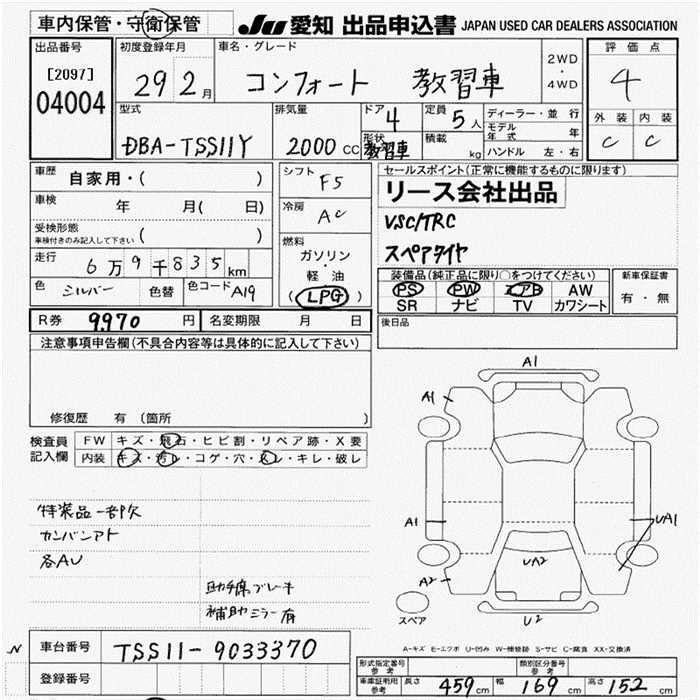 車内保管・守衛保管
JU 愛知 出品申込書 JAPAN USED CAR DEALERS ASSOCIATION
出品番号
[2097]
04004
初度登録年月
29 2月
車名・グレード
コンフォート 教習車
2WD
・
4WD
評価点
4
外装 内装
C C
型式
DBA-TSS11Y
排気量
2000 CC
ドア
4
形状
教習車
定員
5人
積載
kg
ディーラー・並行
モデル年式 年
ハンドル 左・右
車歴
自家用・( )
車検
年 月( 日)
受検形態
車検付きのみ記入して下さい ( )
走行
6万9千835km
色 シルバー 色替 色コード A19
シフト
F5
冷房
AC
燃料
ガソリン
・
軽油
(LPG)
セールスポイント(正常に機能するものに限ります)
リース会社出品
VSC/TRC
スペアタイヤ
装備品(純正品に限り○をつけてください)
PS PW エアB AW
SR ナビ TV カワシート
新車保証書
有・無
後日品
R券 9970 円 名変期限 月 日
注意事項申告欄(不具合内容等は具体的に記入して下さい)
修復歴 有(箇所 )
検査員
記入欄
FW キズ・飛石・ヒビ割・リペア跡・X要
内装 キズ・汚レ・コゲ・穴・スレ・キレ・破レ
特装品一部欠
カンバンアト
各AU
助手席ブレーキ
補助ミラー有
A1
A1
A1
UA1
UA2
A2
U2
スペア
A-キズ E-エクボ U-凹み W-補修跡 S-サビ C-腐食 XX-交換済
車台番号 TSS11-9033370
登録番号
形式指定番号
参考
類別区分番号
参考
車庫証明用
参考
長さ 459cm 幅 169cm 高さ 152cm